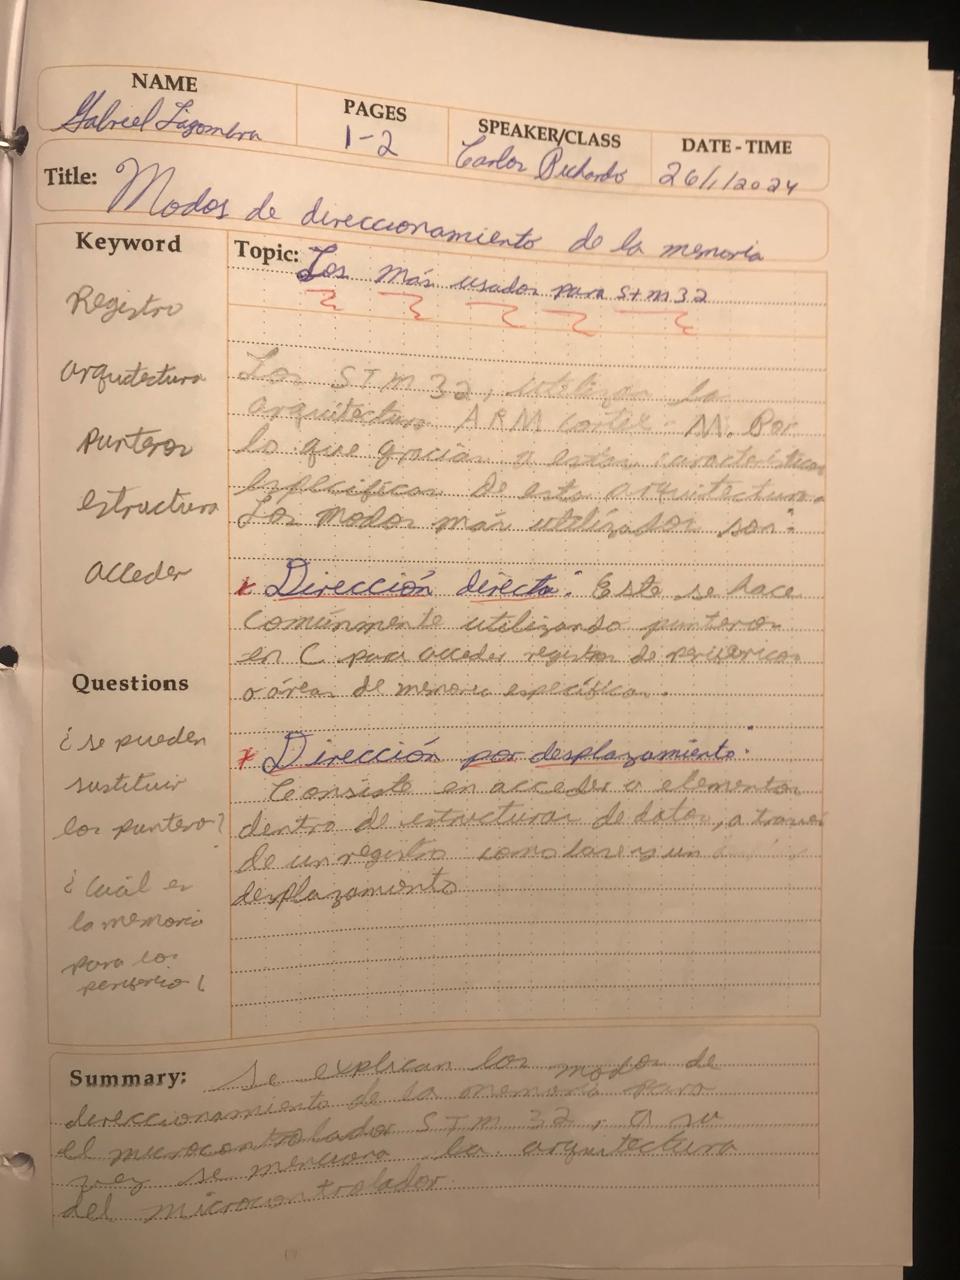 NAME
Gabriel Lagombra
PAGES
1-2
SPEAKER/CLASS
Carlos Pichardo
DATE - TIME
26/1/2024
Title: Modos de direccionamiento de la memoria
Keyword
Registro
arquitectura
Punteros
estructura
acceder
Questions
¿se pueden
sustituir
los punteros?
¿Cuál es
la memoria
para los
periferico
Topic: Los más usados para stm32
Los STM 32, utilizan la
arquitectura ARM Cortex-M. Por
lo que gracias a estas características
específicas de esta arquitectura
Los modos más utilizados son:
* Dirección directa: Este se hace
Comúnmente utilizando punteros
en C para acceder registros de perifericos
o áreas de memoria específicas.
* Dirección por desplazamiento:
Consiste en acceder a elementos
dentro de estructuras de datos, a traves
de un registro como base y un
desplazamiento
Summary: Se explican los modos de
direccionamiento de la memoria para
el microcontrolador STM 32, a su
vez se menciona la arquitectura
del microcontrolador.